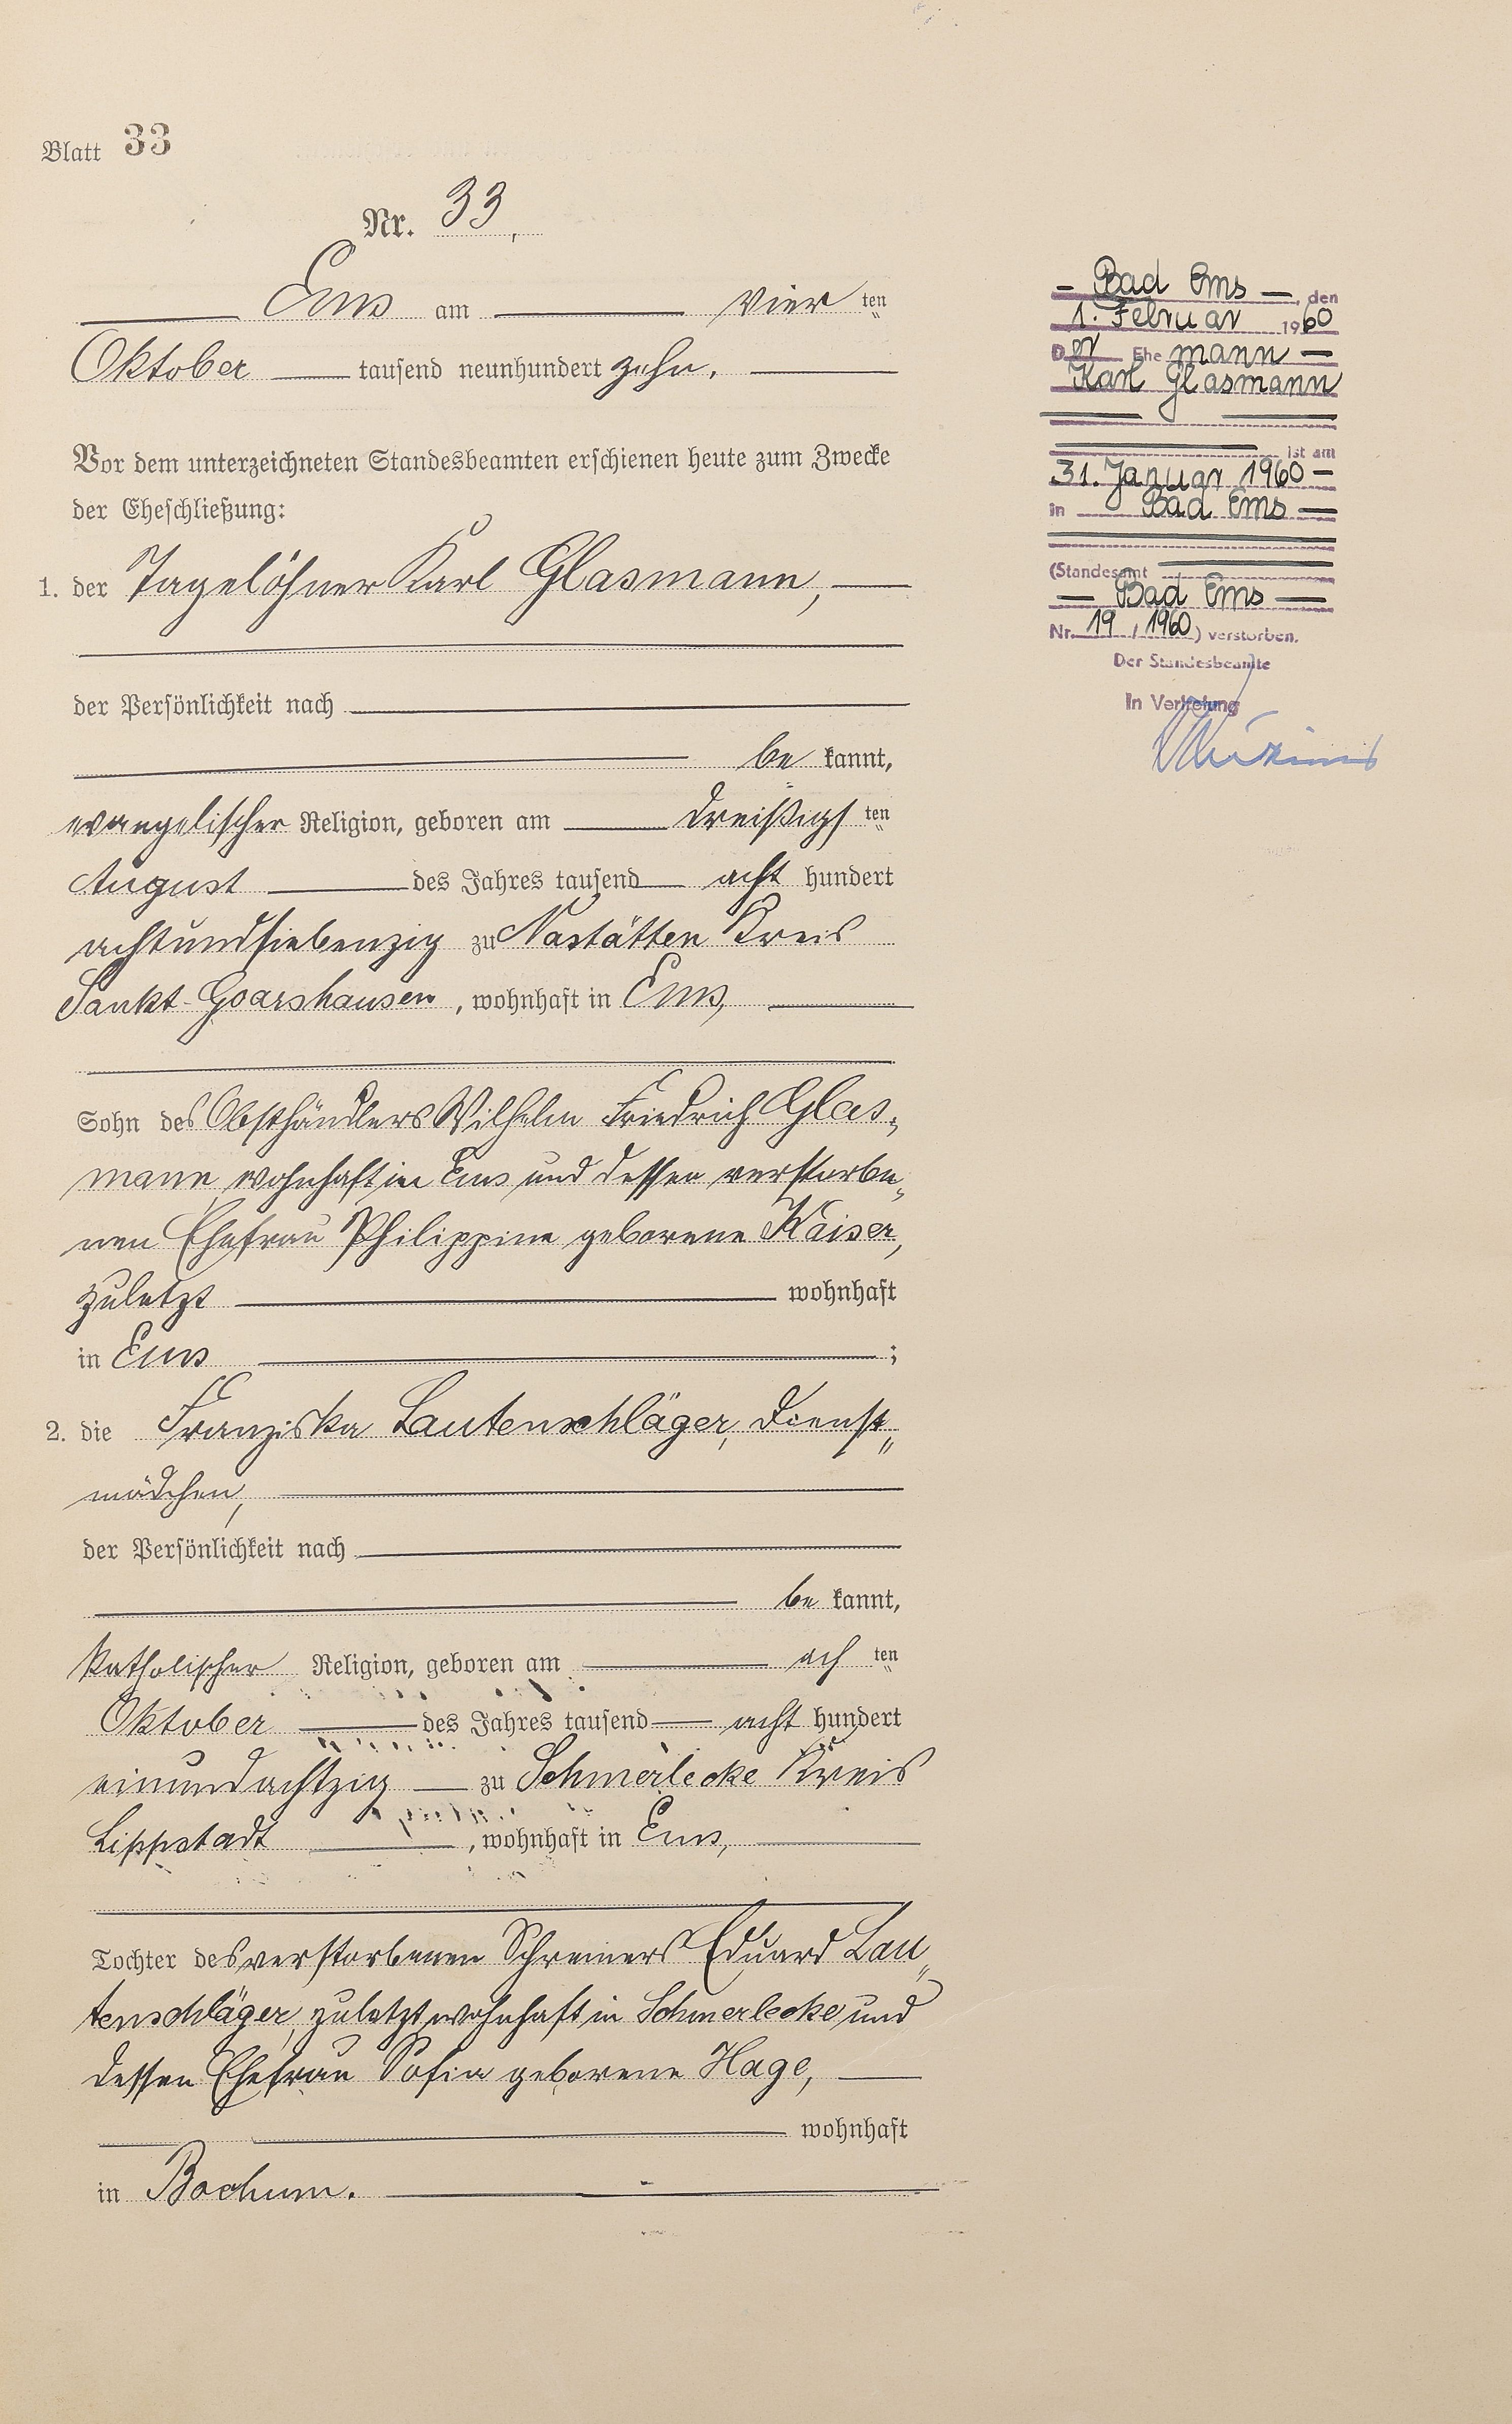 Blatt 33
Nr. 33.
Ems am vier ten
Oktober tausend neunhundert zehn.
Vor dem unterzeichneten Standesbeamten erschienen heute zum Zwecke
der Eheschließung:
1. der Tagelöhner Karl Glasmann,
der Persönlichkeit nach
be kannt,
evangelischer Religion, geboren am dreißigs ten
August des Jahres tausend acht hundert
achtundsiebenzig zu Nastätten Kreis
Sankt-Goarshausen, wohnhaft in Ems,
Sohn des Obsthändlers Wilhelm Friedrich Glas-
mann, wohnhaft in Ems und dessen verstorbe-
nen Ehefrau Philippine geborene Kaiser,
zuletzt wohnhaft
in Ems ;
2. die Franziska Lautenschläger, Dienst-
mädchen,
der Persönlichkeit nach
be kannt,
katholischer Religion, geboren am ach ten
Oktober des Jahres tausend acht hundert
einundachtzig zu Schmerlecke Kreis
Lippstadt, wohnhaft in Ems,
Tochter des verstorbenen Schreiners Eduard Lau-
tenschläger, zuletzt wohnhaft in Schmerlecke und
dessen Ehefrau Sofia geborene Hage,
wohnhaft
in Bochum.
- Bad Ems -, den
1. Februar 1960
Der Ehe mann -
Karl Glasmann
ist am
31. Januar 1960 -
in Bad Ems -
(Standesamt
- Bad Ems -
Nr. 19 / 1960) verstorben.
Der Standesbeamte
In Vertretung